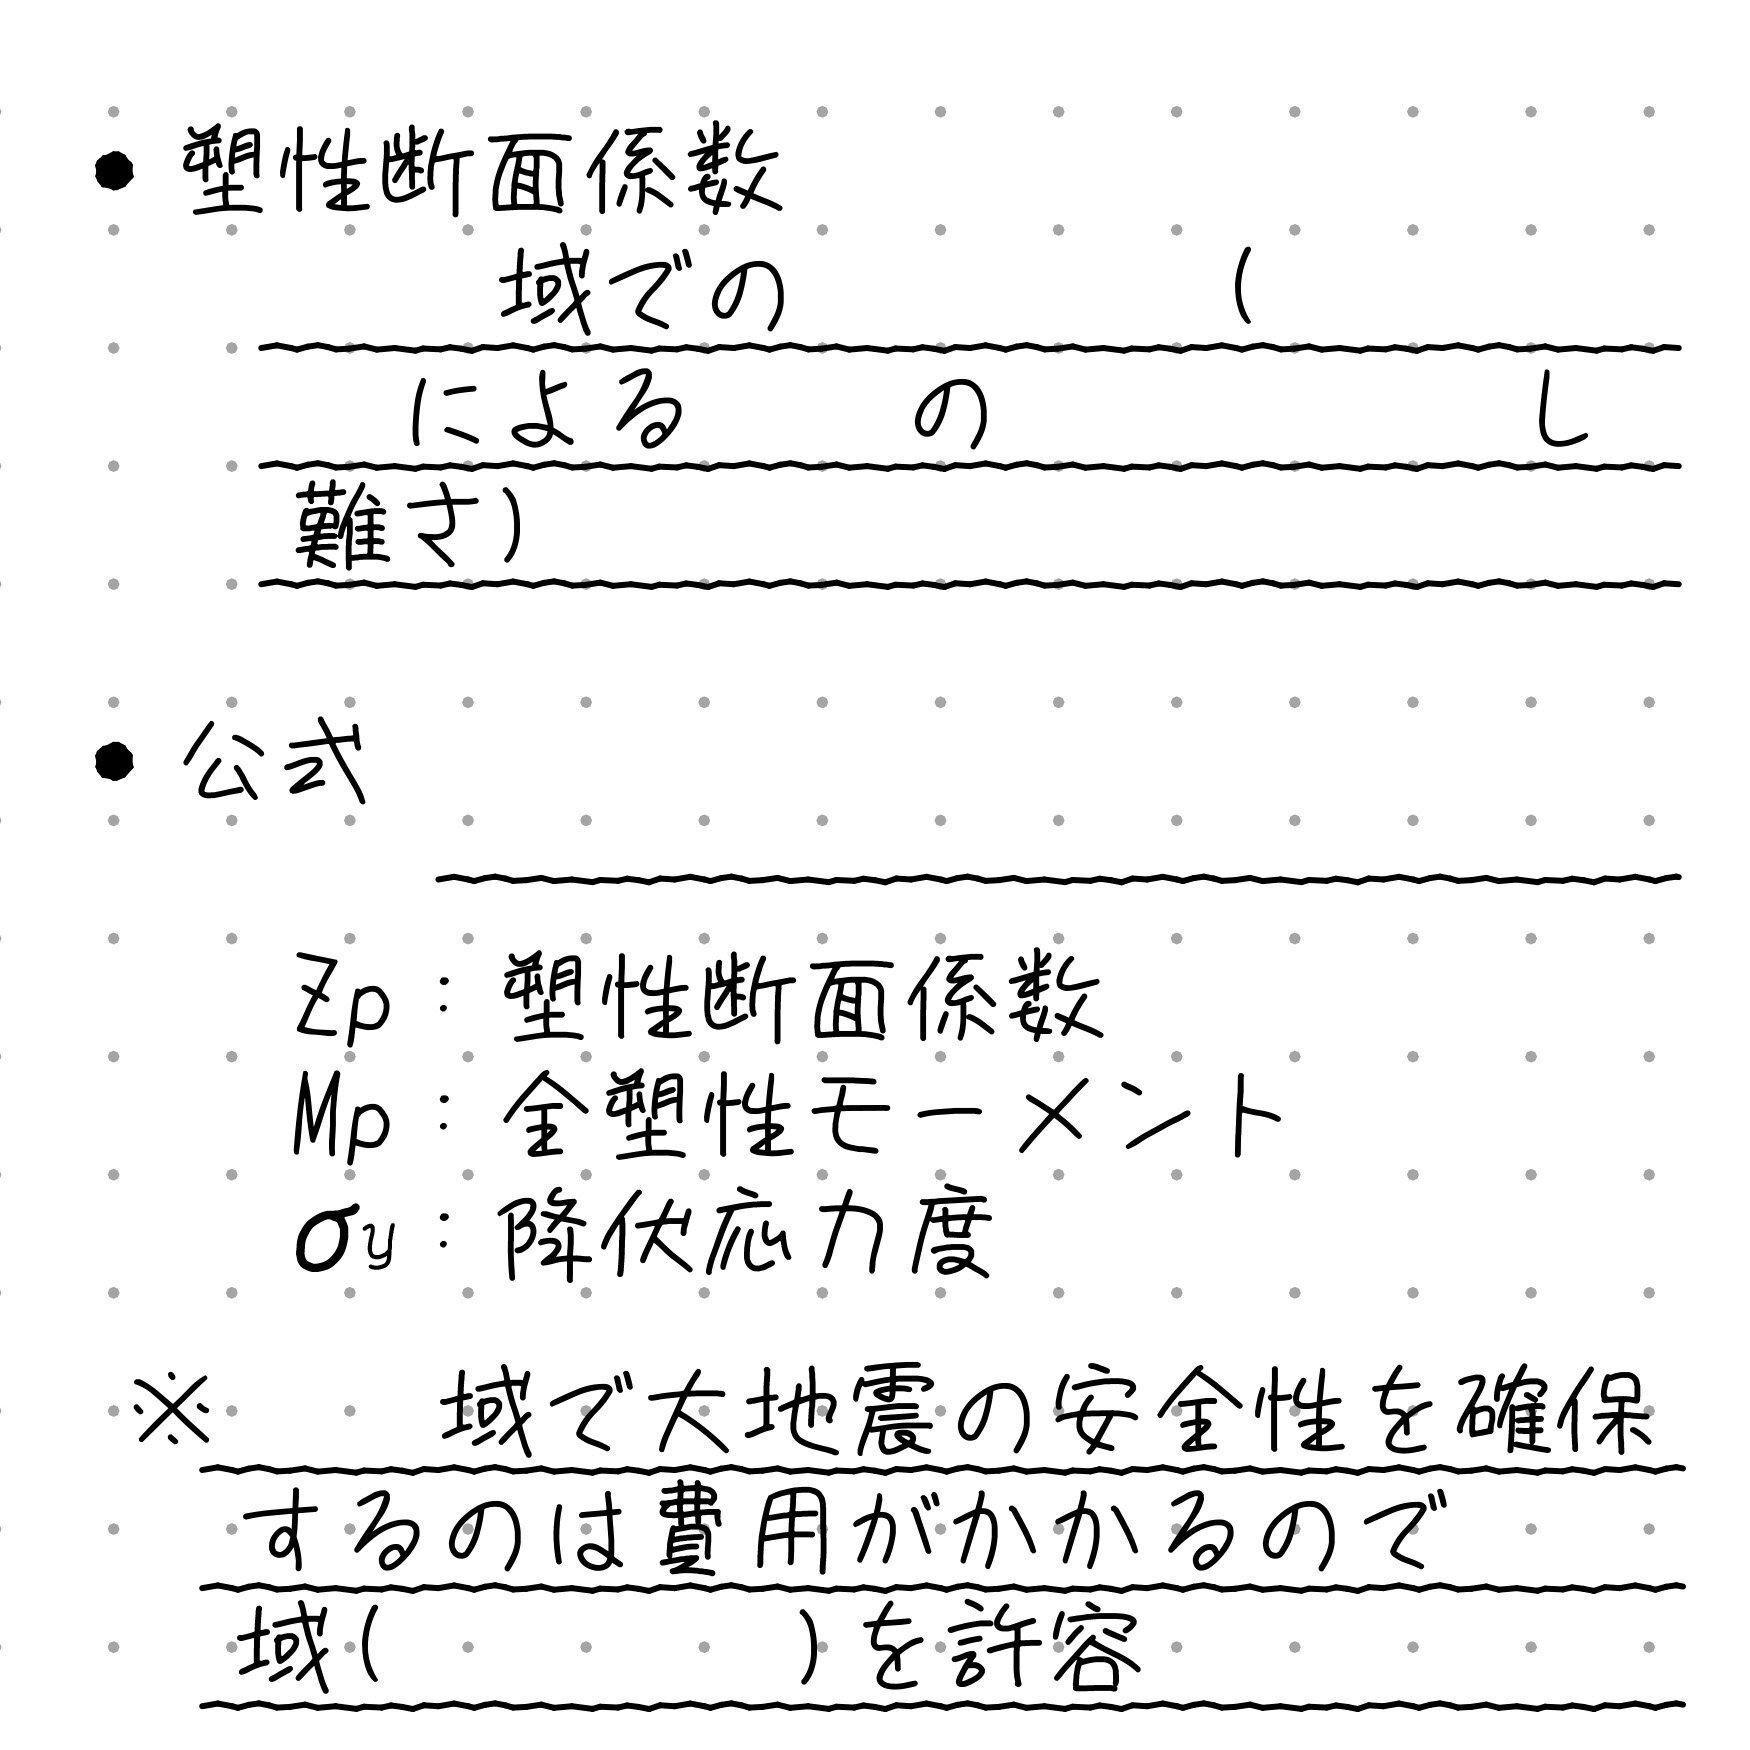 ● 塑性断面係数
域での (
による の し
難さ)
● 公式
Zp : 塑性断面係数
Mp : 全塑性モーメント
σy : 降伏応力度
※ 域で大地震の安全性を確保
するのは費用がかかるので
域( )を許容